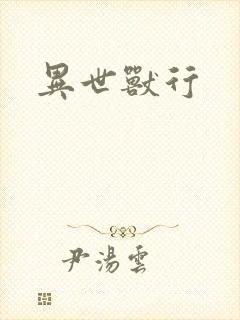 異世獸行
尹湯雲